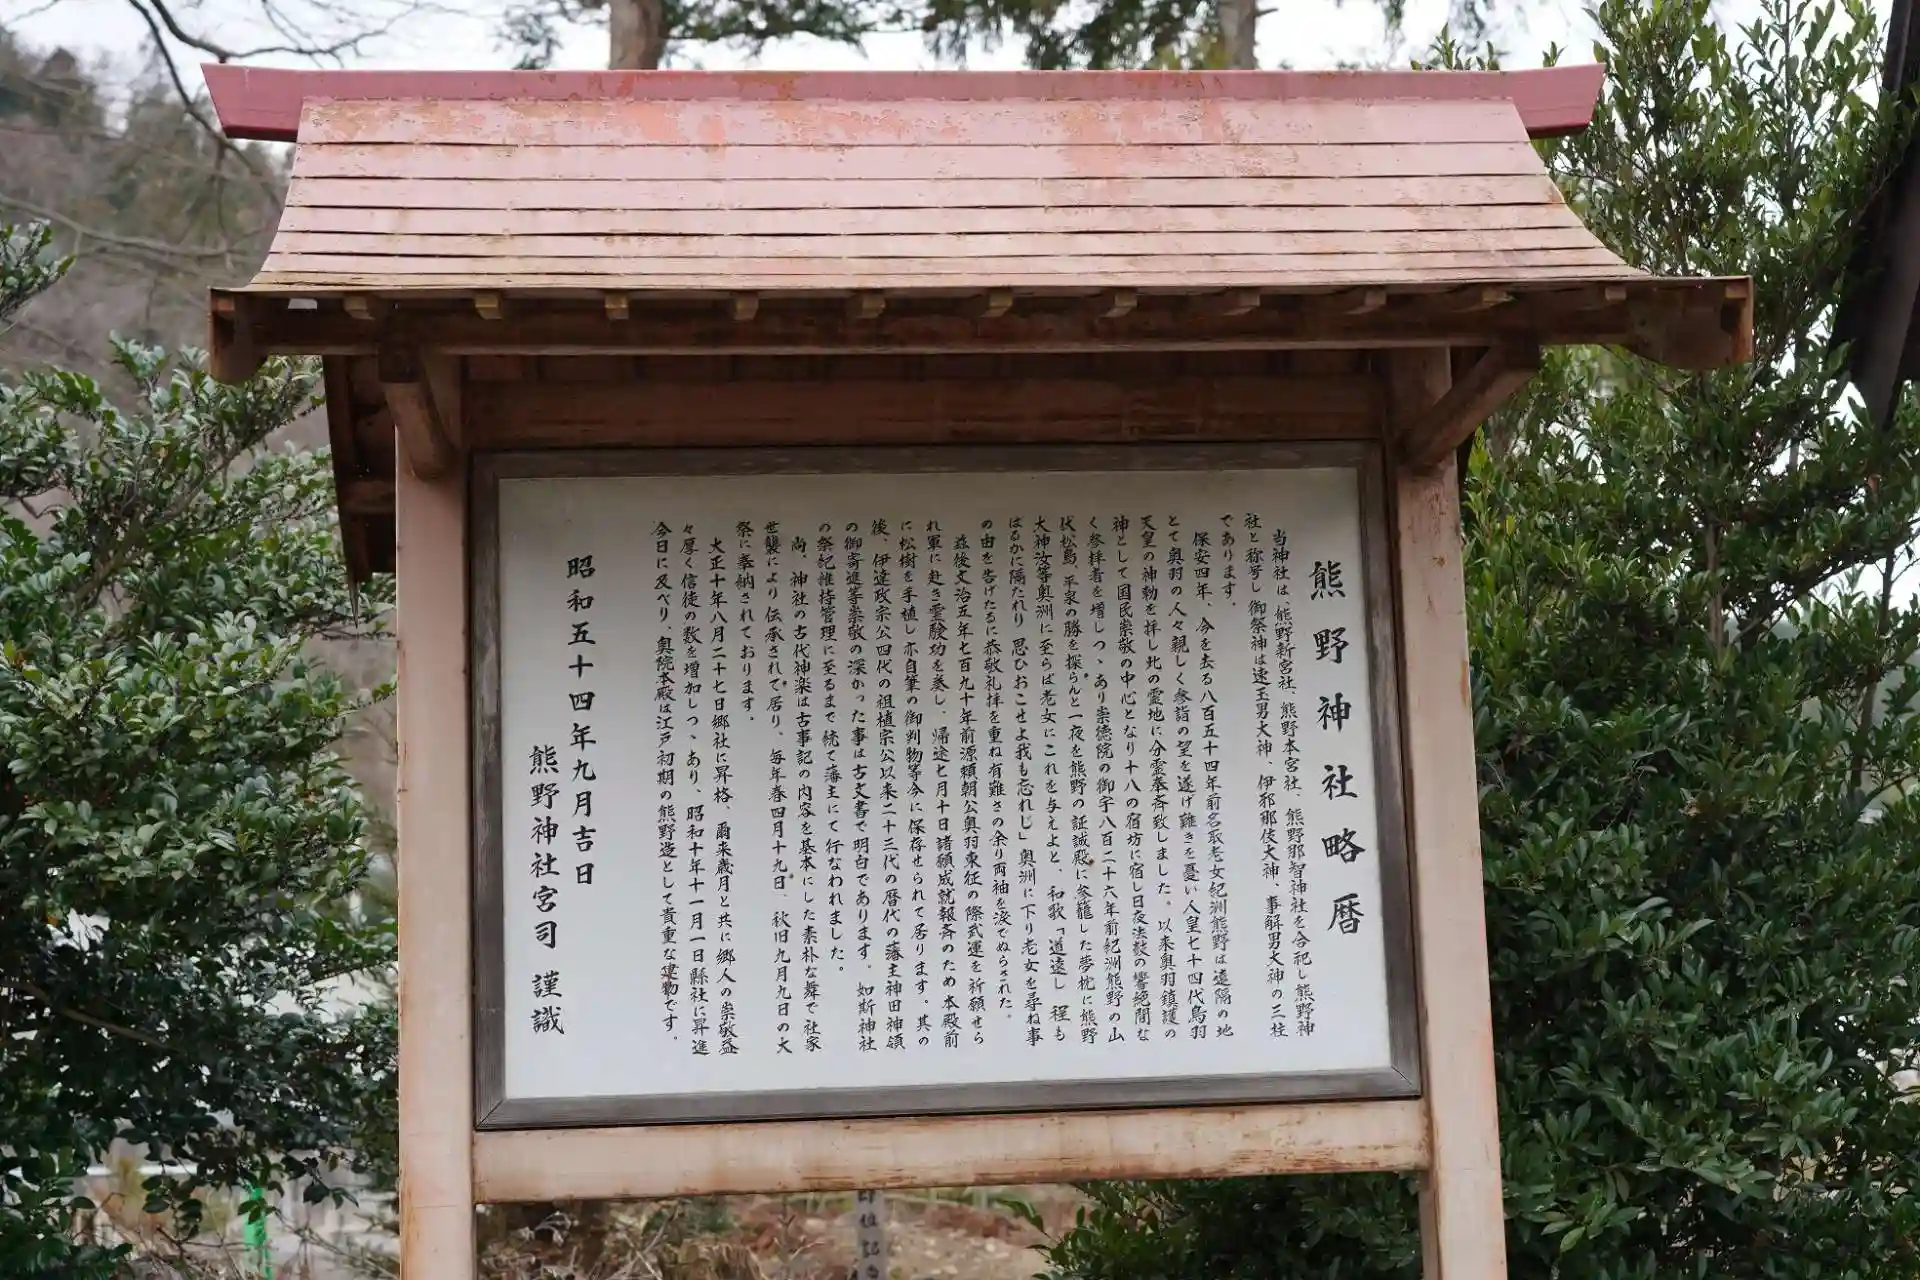 熊野神社略暦
当神社は、熊野新宮社、熊野本宮社、熊野那智神社を合祀し熊野神
社と称号し御祭神は速玉男大神、伊邪那伎大神、事解男大神の三柱
であります。
保安四年、今を去る八百五十四年前名取老女紀洲熊野は遠隔の地
とて奥羽の人々親しく参詣の望を遂げ難きを憂い人皇七十四代鳥羽
天皇の神勅を拝し此の霊地に分霊奉斉致しました。以来奥羽鎮護の
神として国民崇敬の中心となり十八の宿坊に宿し日夜法鼓の響絶間な
く参拝者を増しつゝあり崇徳院の御宇八百二十六年前紀洲熊野の山
伏松島、平泉の勝を探らんと一夜を熊野の証誠殿に参籠した夢枕に熊野
大神汝等奥洲に至らば老女にこれを与えよと、和歌「道遠し 程も
はるかに隔たれり 思ひおこせよ我も忘れじ」奥洲に下り老女を尋ね事
の由を告げたるに恭敬礼拝を重ね有難さの余り両袖を涙でぬらされた。
益後文治五年七百九十年前源頼朝公奥羽東征の際武運を祈願せら
れ軍に赴き霊験功を奏し、帰途七月十日諸願成就報斉のため本殿前
に松樹を手植し亦自筆の御判物等今に保存せられて居ります。其の
後、伊達政宗公四代の祖植宗公以来二十三代の暦代の藩主神田神領
の御寄進等崇敬の深かった事は古文書で明白であります。如斯神社
の祭紀維持管理に至るまで統て藩主にて行なわれました。
尚、神社の古代神楽は古事記の内容を基本にした素朴な舞で社家
世襲により伝承されて居り、毎年春四月十九日、秋旧九月九日の大
祭に奉納されております。
大正十年八月二十七日郷社に昇格、爾来歳月と共に郷人の崇敬益
々厚く信徒の数を増加しつゝあり、昭和十年十一月一日縣社に昇進
今日に及べり、奥院本殿は江戸初期の熊野造として貴重な建物です。
昭和五十四年九月吉日
熊野神社宮司 謹識